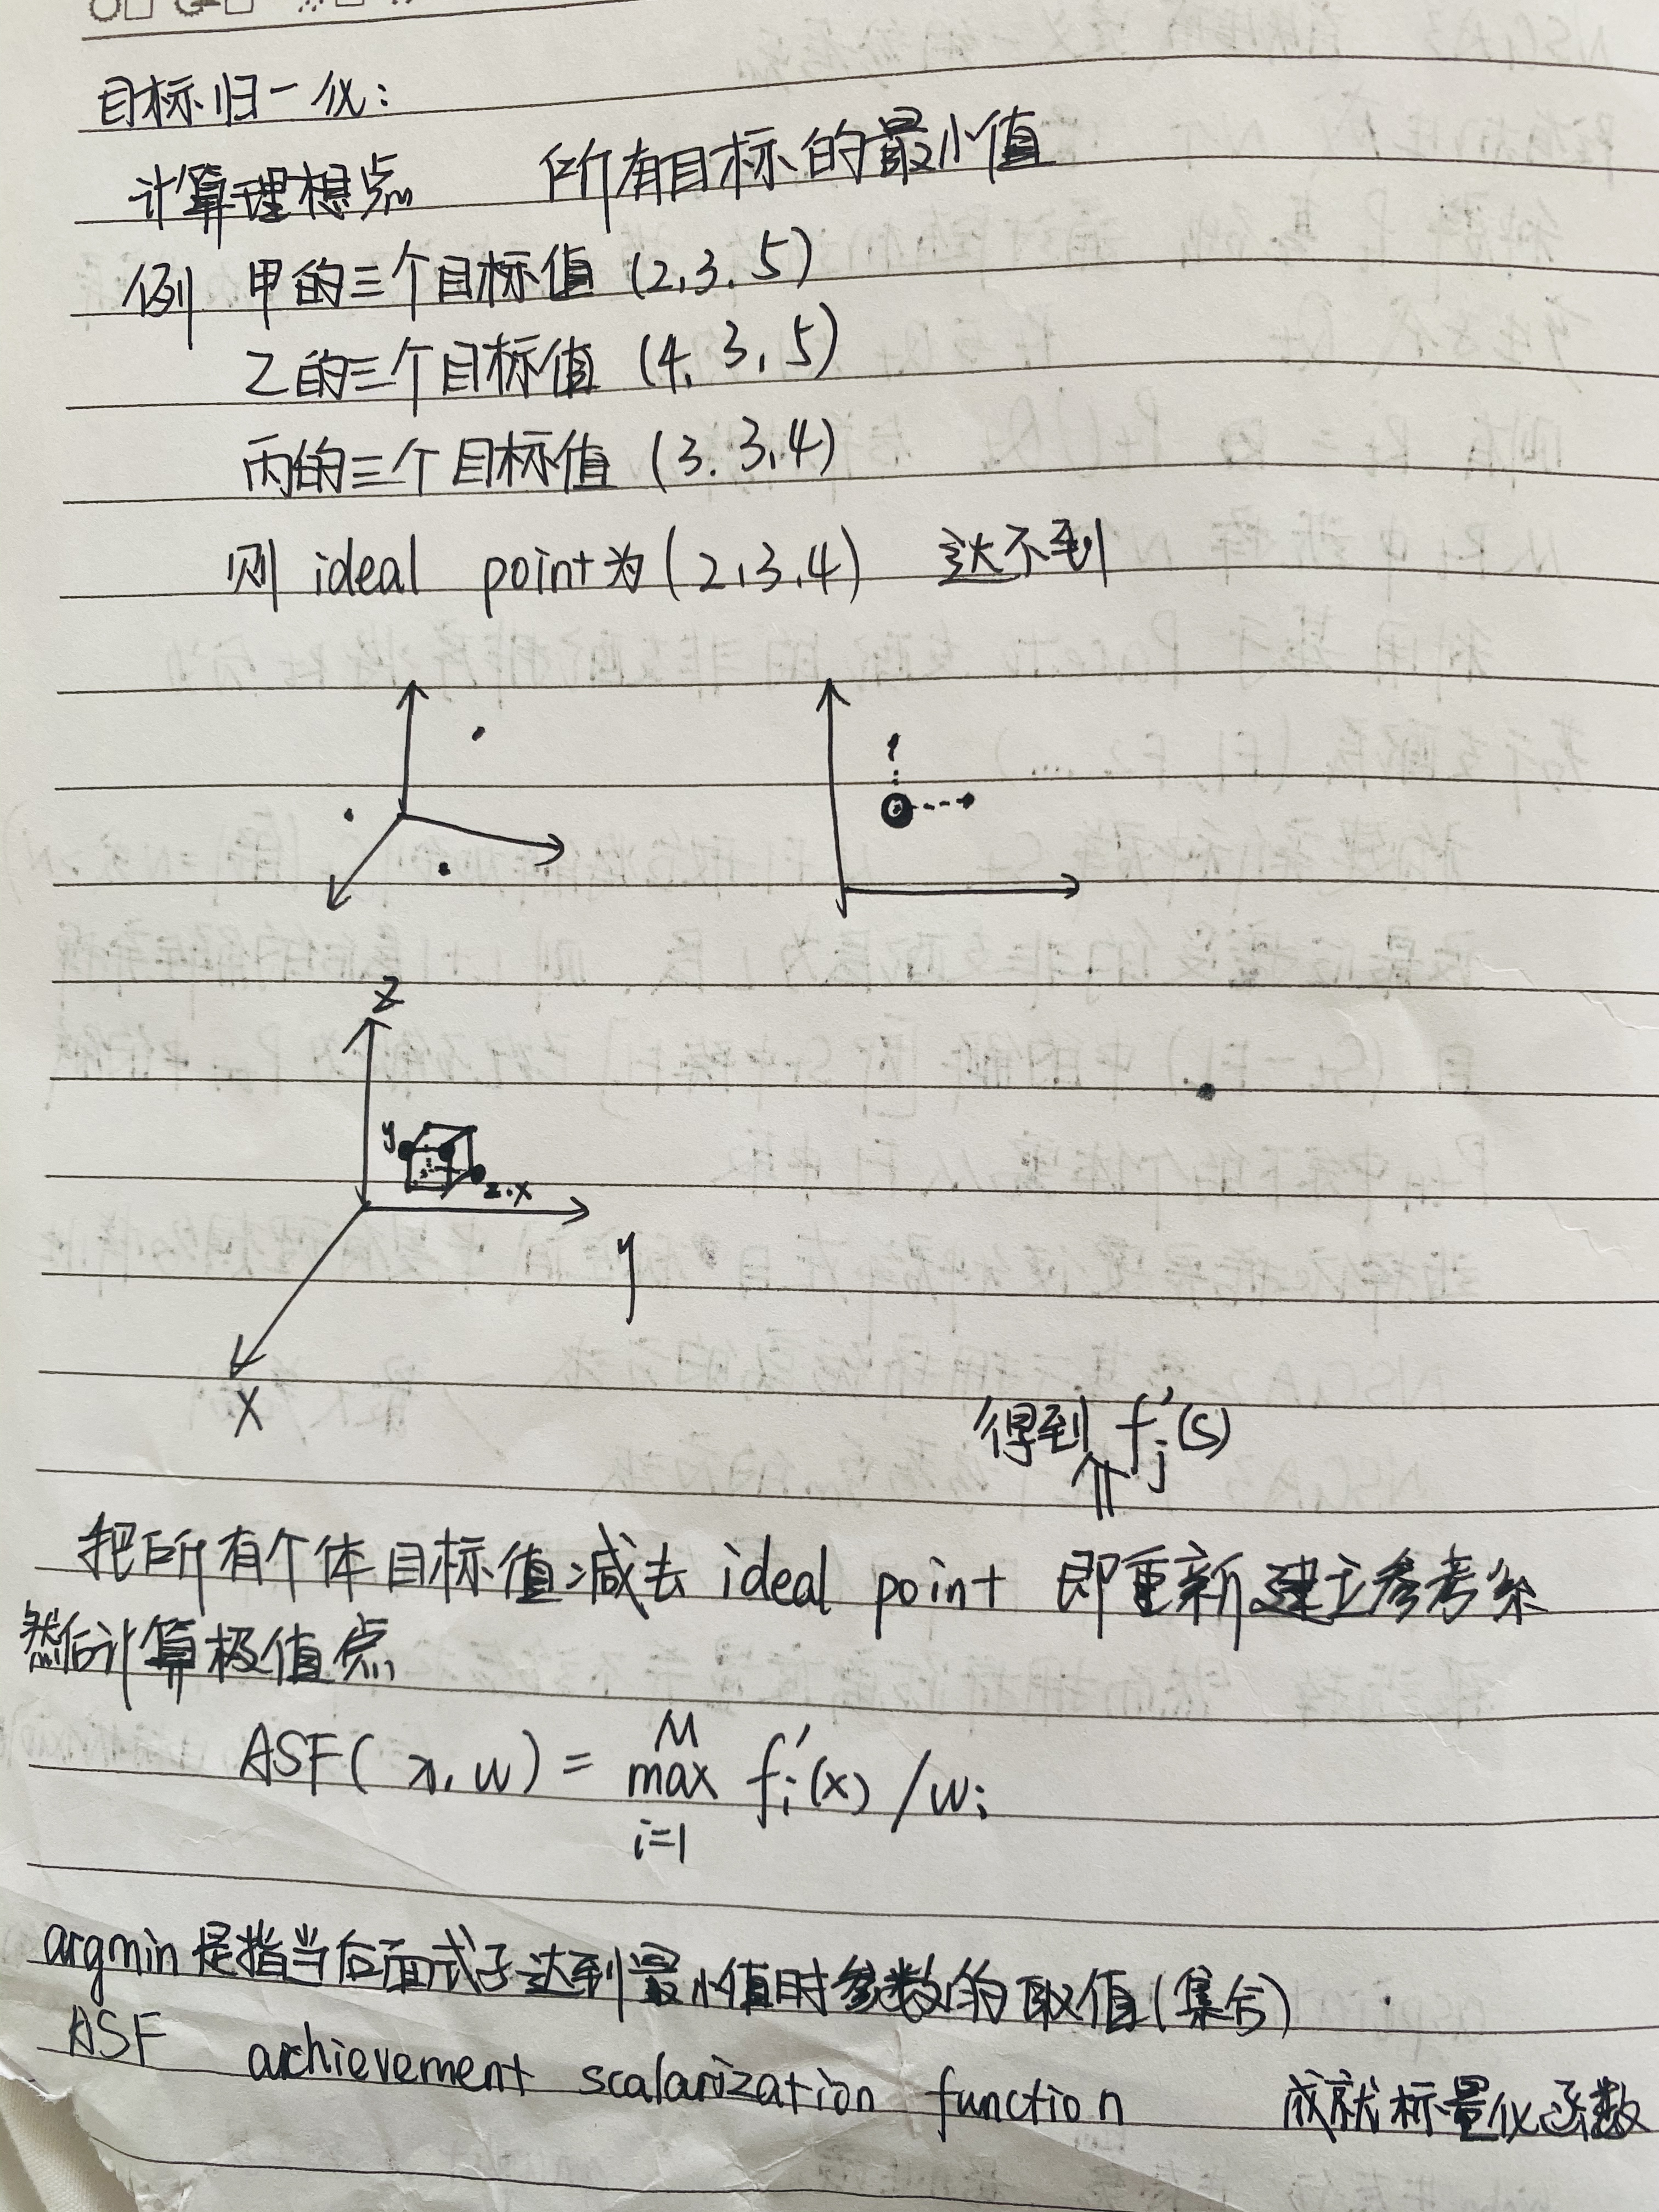 目标归一化:
计算理想点 所有目标的最小值
例 甲的三个目标值 (2,3.5)
乙的三个目标值 (4,3,5)
丙的三个目标值 (3.3,4)
则 ideal point为(2,3,4) 达不到
Z
y
z.x
y
X
得到 f'j(s)
⇑
把所有个体目标值减去 ideal point 即重新建立参考系
然后计算极值点
ASF(x,w) = max_{i=1}^{M} f'i(x) / wi
argmin 是指当后面式子达到最小值时参数的取值(集合)
ASF achievement scalarization function 成就标量化函数